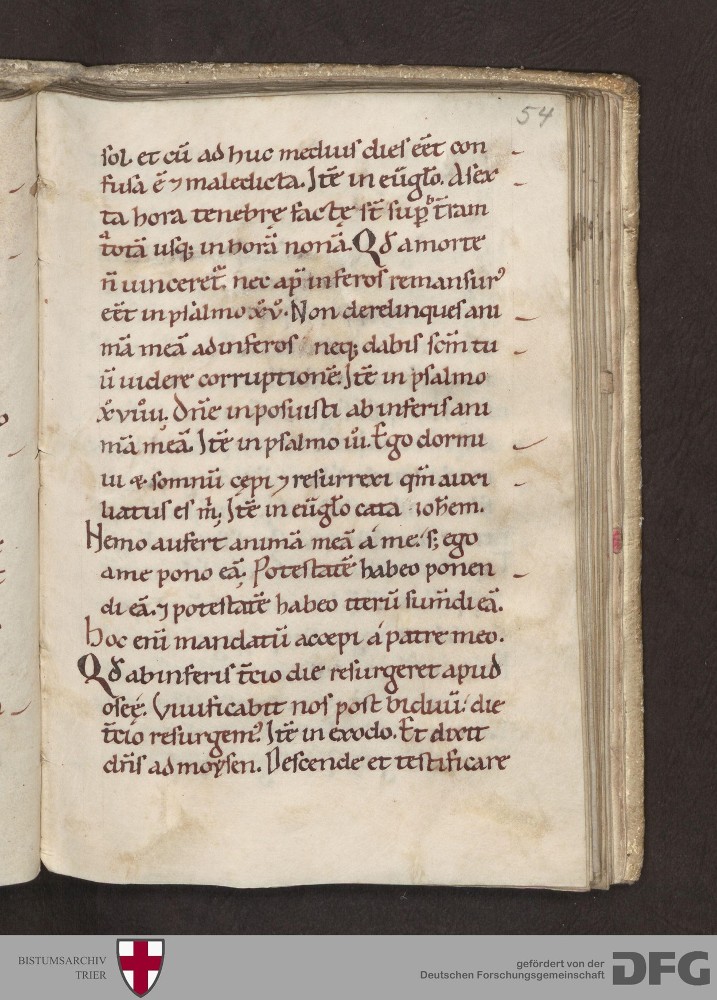 54
sol. et cū ad huc medius dies eēt con
fusa ē ⁊ maledicta. Itē in eūglo. A sex
ta hora tenebrę factę st̄ sup̄ t̄ram
totā usq; in horā nonā. Qd a morte
n̄ uinceret̄. nec ap̄ inferos remansur᾿
eēt in psalmo xv. Non derelinques ani
mā meā ad inferos neq; dabis sc̄m tu
ū uidere corruptionē. Itē in psalmo
xxviiii. Dn̄e inposuisti ab inferis ani
mā meā. Itē in psalmo iii. Ego dormi
ui & somnū cępi ⁊ resurrexi qm̄ auxi
liatus es m̄. Itē in eūglo cata ioh̄em.
Nemo aufert animā meā á me. s; ego
a me pono eā. Potestatē habeo ponen
di eā. ⁊ potestatē habeo iterū sum̄di eā.
Hoc eni̅ mandatū accepi á patre meo.
Qd ab inferis t̄cio die resurgeret apud
oseę. Viuificabit nos post biduū. die
t̄cio resurgem᾿. Itē in exodo. Et dixit
dn̄s ad moysen. Descende et testificare
BISTUMSARCHIV
TRIER
gefördert von der
Deutschen Forschungsgemeinschaft
DFG